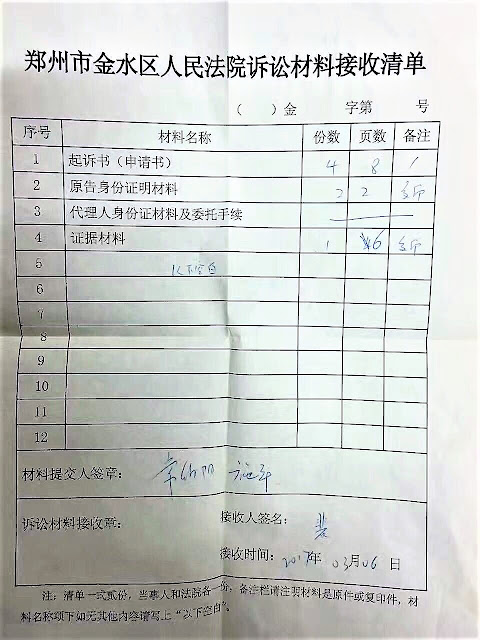 郑州市金水区人民法院诉讼材料接收清单
（ ）金 字第 号
序号 材料名称 份数 页数 备注
1 起诉书（申请书） 4 8 /
2 原告身份证明材料 2 2 复印
3 代理人身份证材料及委托手续
4 证据材料 1 46 复印
5 以下空白
6
7
8
9
10
11
12
材料提交人签章： 常伯阳
诉讼材料接收章： 接收人签名： 裴
接收时间：2017年 03月06日
注：清单一式贰份，当事人和法院各一份，备注栏请注明材料是原件或复印件，材
料名称项下如无其他内容请写上“以下空白”。